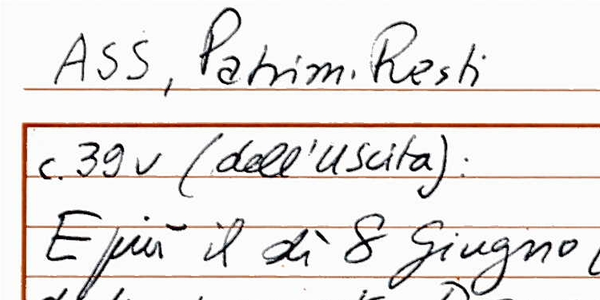 ASS, Patrim. Resti
c. 39v (dell'Uscita):
E più il dì 8 Giugno